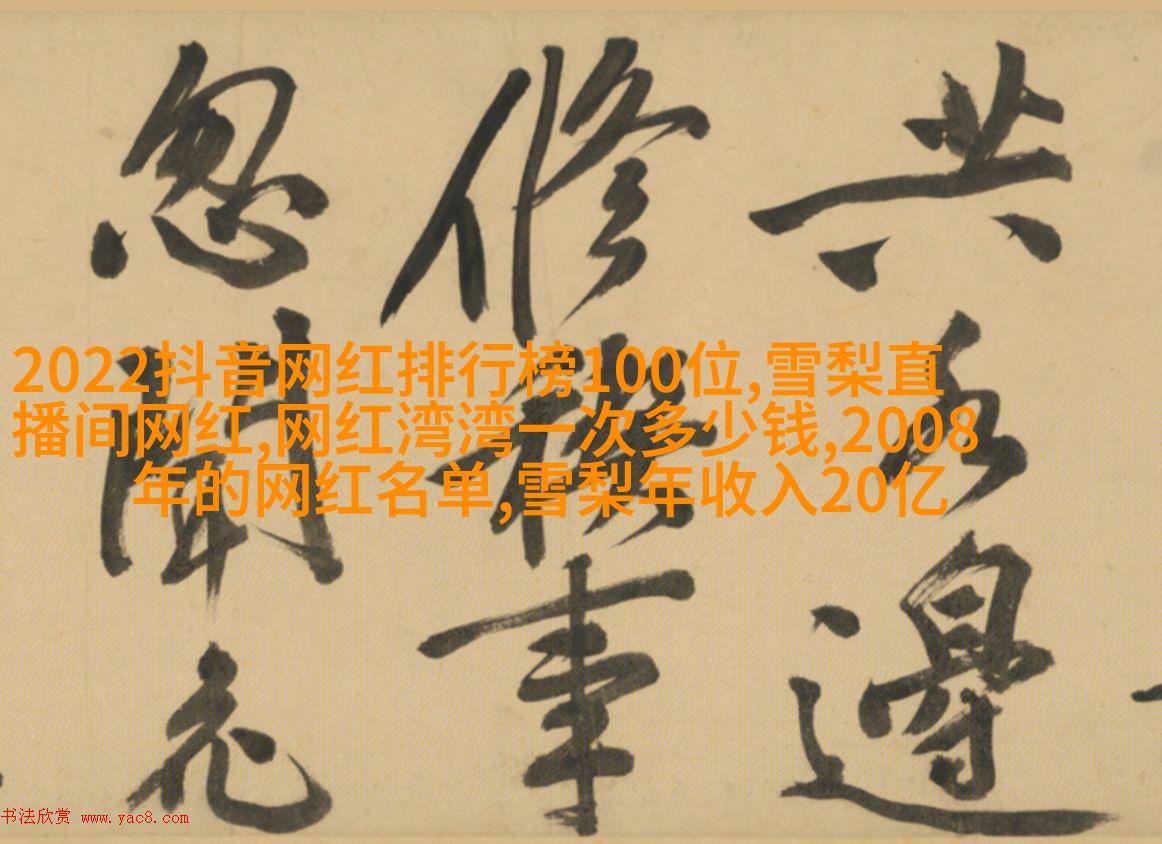 2022抖音网红排行榜100位,雪梨直
播间网红,网红湾湾一次多少钱,2008
年的网红名单,雪梨年收入20亿
共水邊
修禊事
忽聞
书法欣赏 www.yac8.com